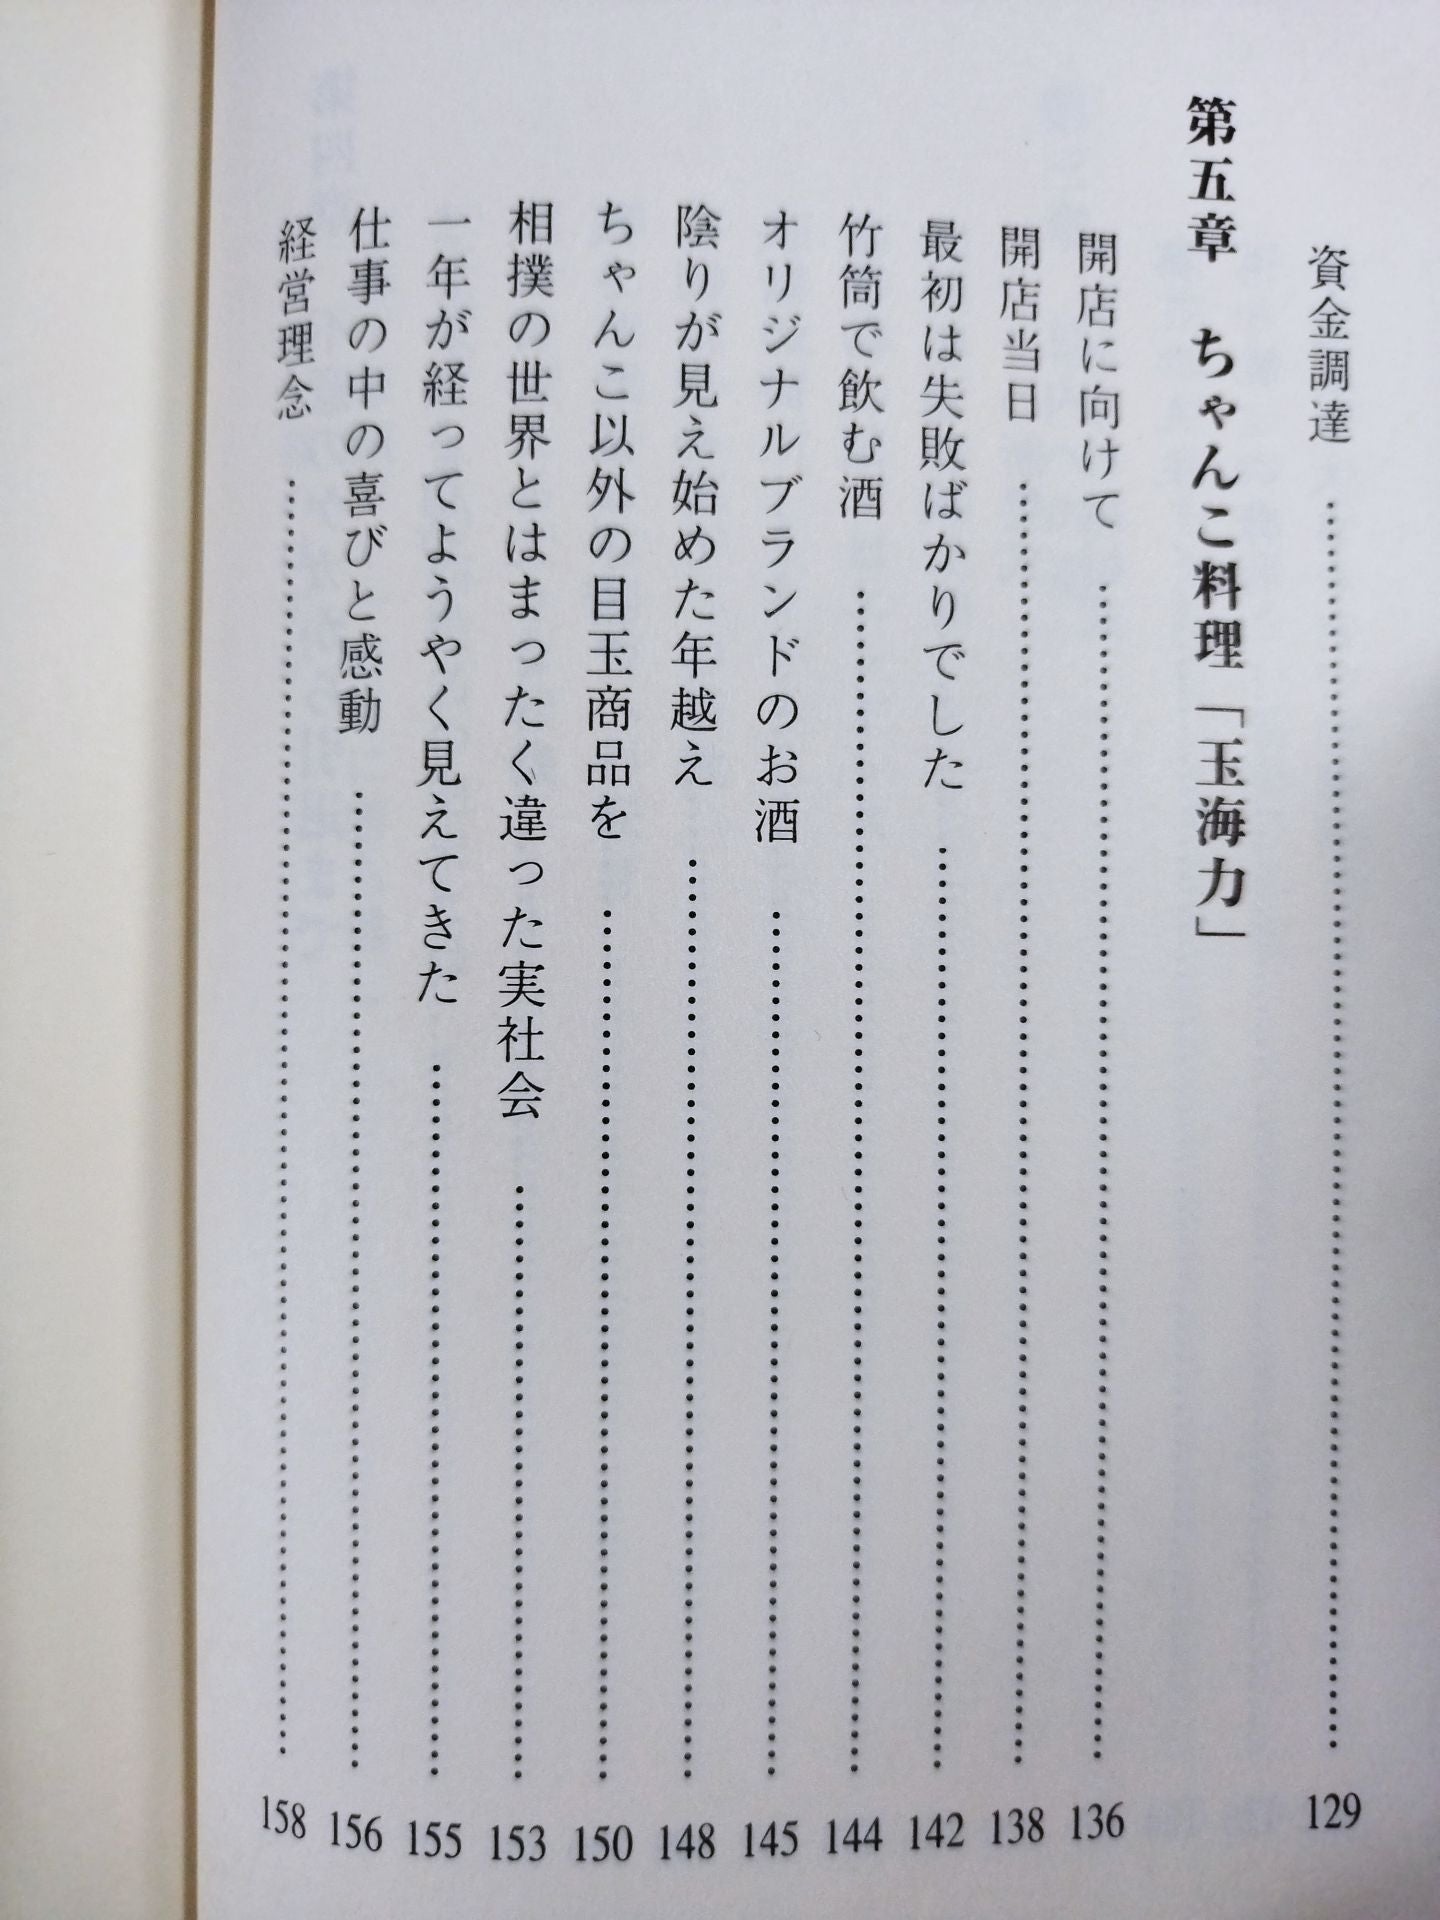 資金調達……129
第五章　ちゃんこ料理「玉海力」
開店に向けて……136
開店当日……138
最初は失敗ばかりでした……142
竹筒で飲む酒……144
オリジナルブランドのお酒……145
陰りが見え始めた年越え……148
ちゃんこ以外の目玉商品を……150
相撲の世界とはまったく違った実社会……153
一年が経ってようやく見えてきた……155
仕事の中の喜びと感動……156
経営理念……158